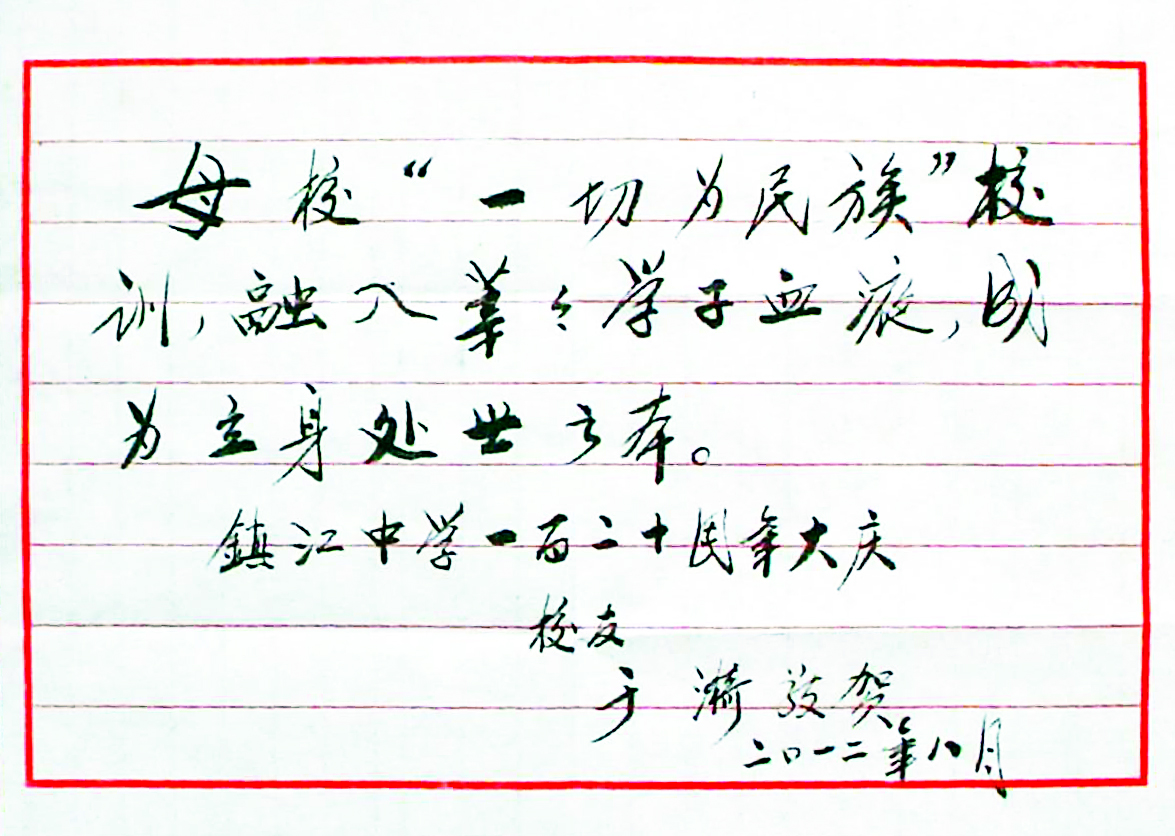 母校“一切为民族”校
训，融入莘々学子血液，成
为立身处世之本。
鎮江中学一百二十周年大庆
校友
于漪敬贺
二〇一二年八月